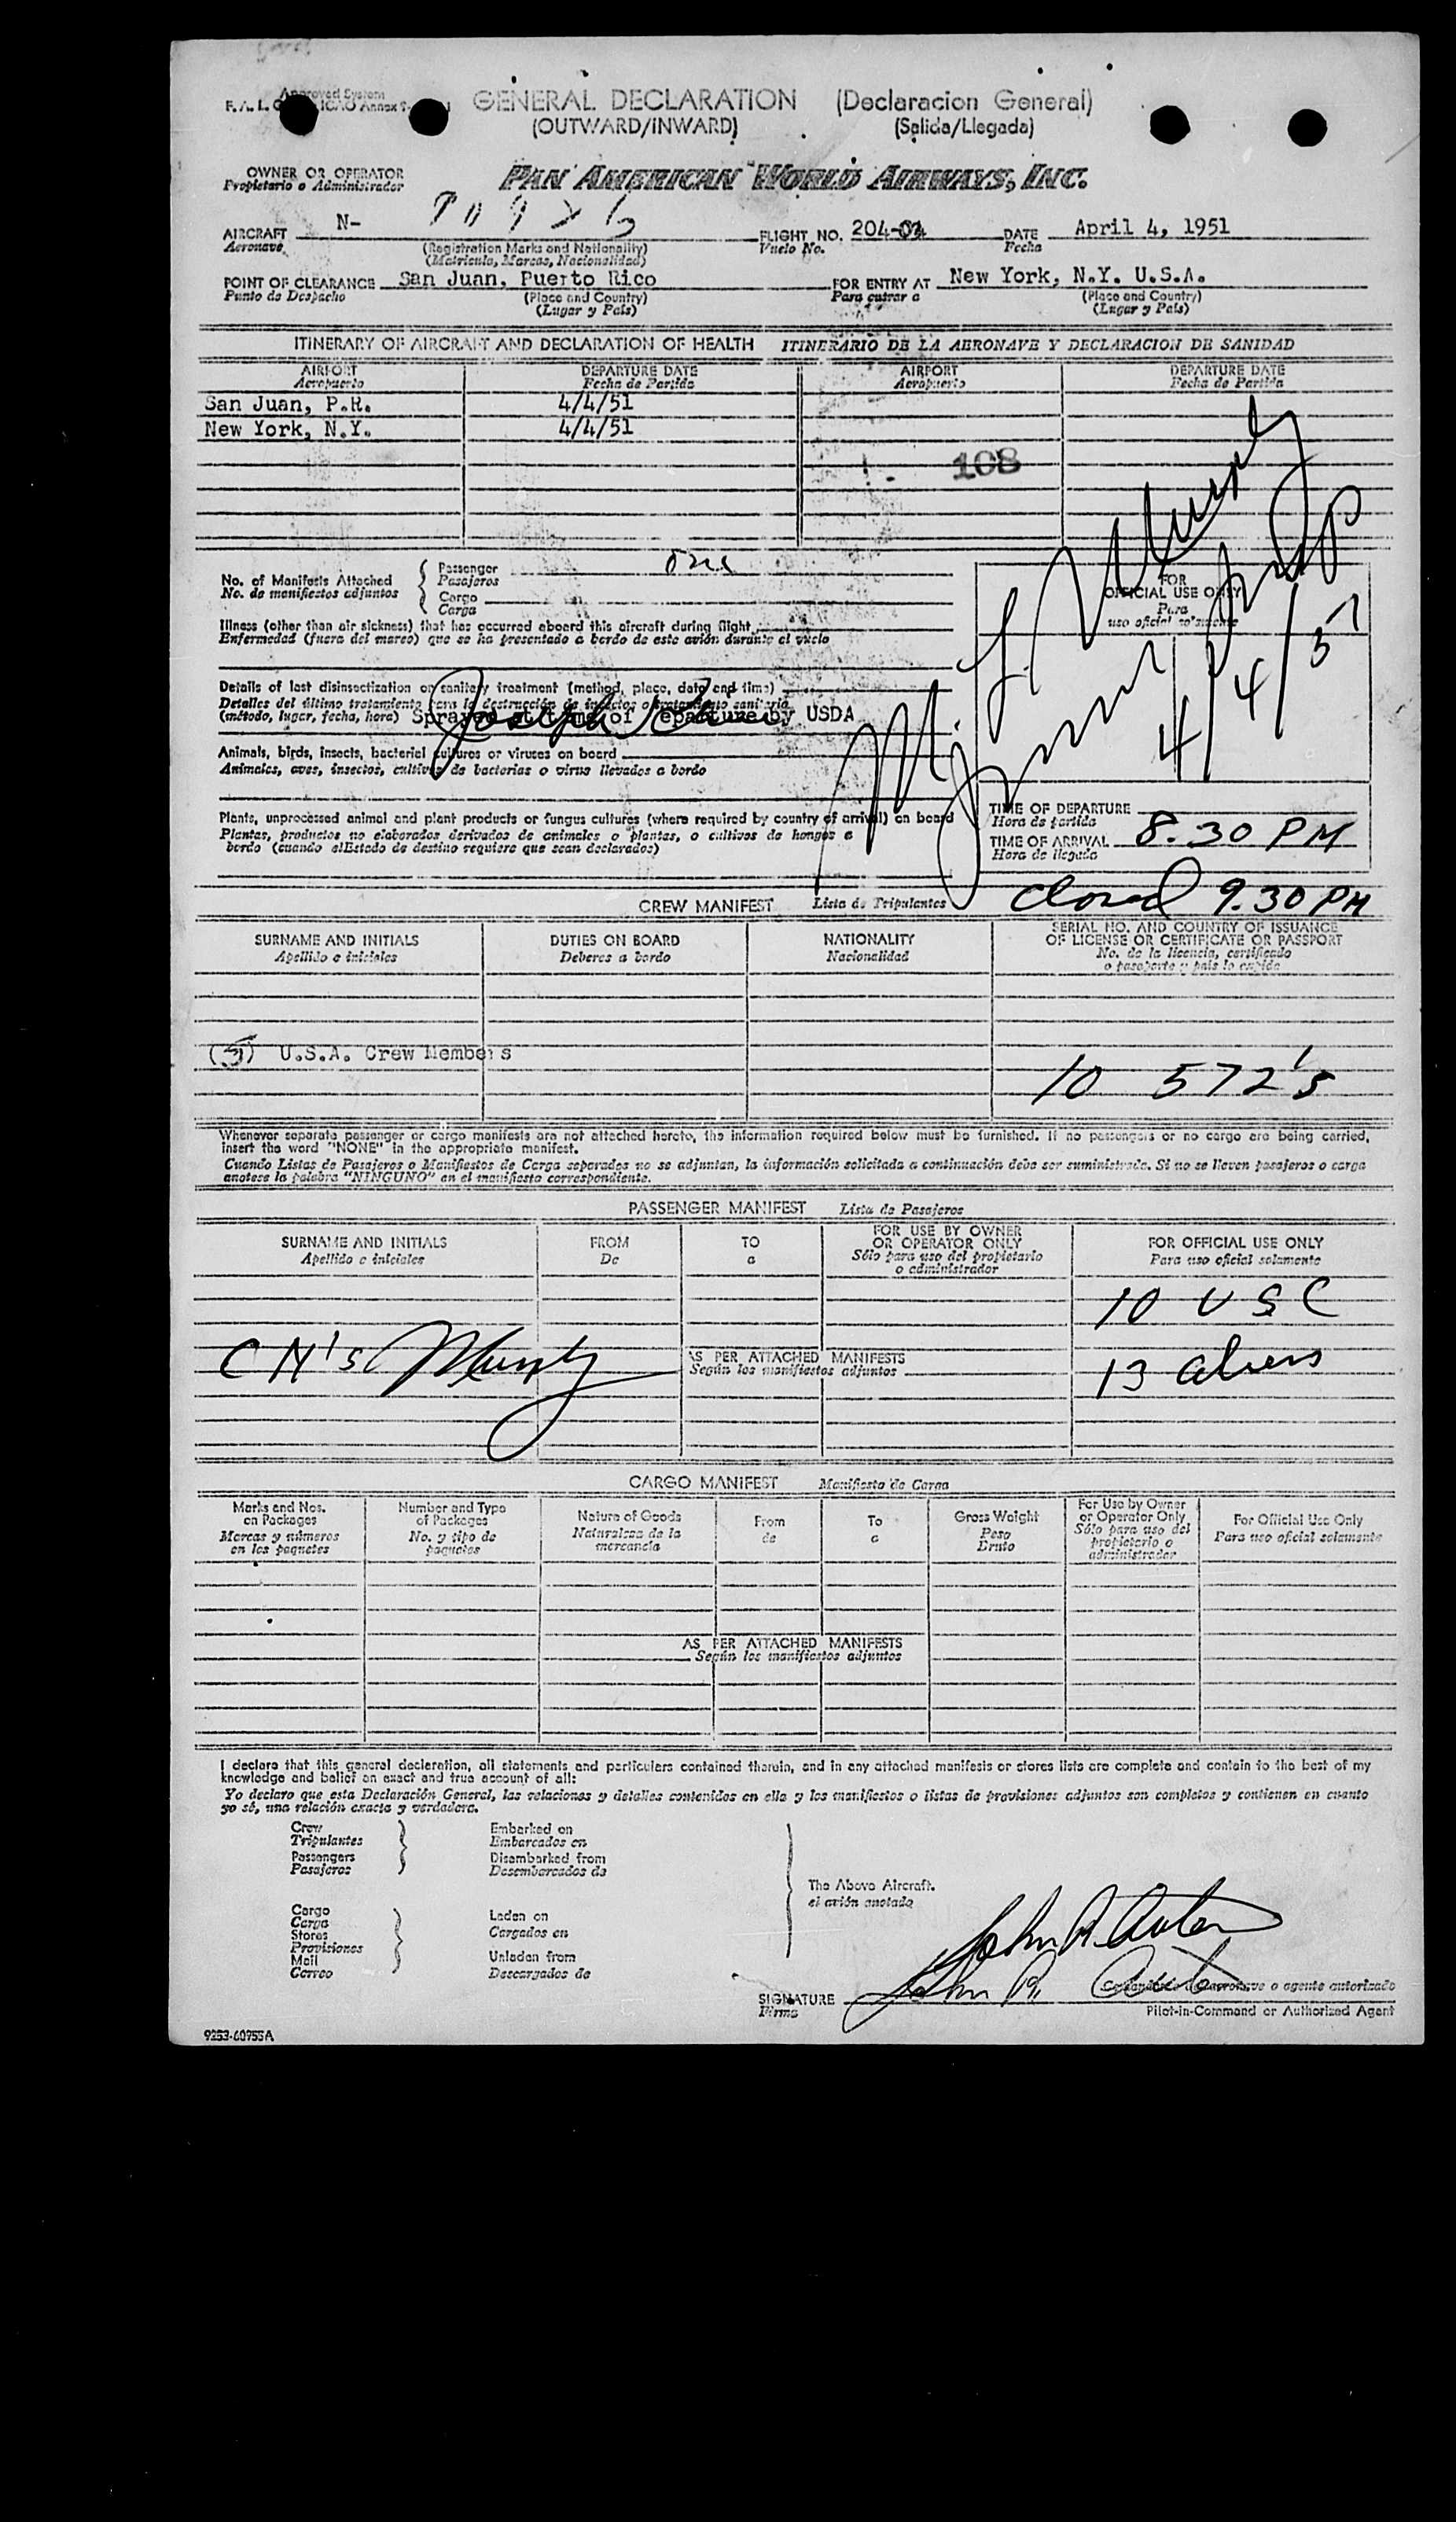 Approved System
F. A. L. ICAO Annex 9
GENERAL DECLARATION (Declaracion General)
(OUTWARD/INWARD) (Salida/Llegada)
OWNER OR OPERATOR
Propietario o Administrador
PAN AMERICAN WORLD AIRWAYS, INC.
AIRCRAFT N- FLIGHT NO. 204- DATE April 4, 1951
Aeronave (Registration Marks and Nationality) Vuelo No. Fecha
(Matricula, Marcas, Nacionalidad)
POINT OF CLEARANCE San Juan, Puerto Rico FOR ENTRY AT New York, N.Y. U.S.A.
Punto de Despacho (Place and Country) Para entrar a (Place and Country)
(Lugar y País) (Lugar y País)
ITINERARY OF AIRCRAFT AND DECLARATION OF HEALTH ITINERARIO DE LA AERONAVE Y DECLARACION DE SANIDAD
AIRPORT DEPARTURE DATE AIRPORT DEPARTURE DATE
Aeropuerto Fecha de Partida Aeropuerto Fecha de Partida
San Juan, P.R. 4/4/51
New York, N.Y. 4/4/51
108
No. of Manifests Attached
No. de manifiestos adjuntos
Passenger one
Pasajeros
Cargo
Carga
FOR
OFFICIAL USE ONLY
Para
uso oficial solamente
M. J. Murphy
4/4/51
Illness (other than air sickness) that has occurred aboard this aircraft during flight
Enfermedad (fuera del mareo) que se ha presentado a bordo de este avión durante el vuelo
Details of last disinsectization or sanitary treatment (method, place, date and time)
Detalles del último tratamiento para la destrucción de insectos o tratamiento sanitario
(método, lugar, fecha, hora) Sprayed at time of departure by USDA
Joseph
Animals, birds, insects, bacterial cultures or viruses on board
Animales, aves, insectos, cultivos de bacterias o virus llevados a bordo
Plants, unprocessed animal and plant products or fungus cultures (where required by country of arrival) on board
Plantas, productos no elaborados derivados de animales o plantas, o cultivos de hongos a
bordo (cuando el Estado de destino requiere que sean declarados)
TIME OF DEPARTURE
Hora de partida
TIME OF ARRIVAL 8.30 PM
Hora de llegada
closed 9.30 PM
CREW MANIFEST Lista de Tripulantes
SURNAME AND INITIALS DUTIES ON BOARD NATIONALITY SERIAL NO. AND COUNTRY OF ISSUANCE
OF LICENSE OR CERTIFICATE OR PASSPORT
Apellido e iniciales Deberes a bordo Nacionalidad No. de la licencia, certificado
o pasaporte y país lo expide
(5) U.S.A. Crew Members
10 572's
Whenever separate passenger or cargo manifests are not attached hereto, the information required below must be furnished. If no passengers or no cargo are being carried,
insert the word "NONE" in the appropriate manifest.
Cuando Listas de Pasajeros o Manifiestos de Carga separados no se adjuntan, la información solicitada a continuación debe ser suministrada. Si no se lleven pasajeros o carga
anotese la palabra "NINGUNO" en el manifiesto correspondiente.
PASSENGER MANIFEST Lista de Pasajeros
SURNAME AND INITIALS FROM TO FOR USE BY OWNER
OR OPERATOR ONLY FOR OFFICIAL USE ONLY
Apellido e iniciales De a Sólo para uso del propietario
o administrador Para uso oficial solamente
10 USC
CH's Murphy AS PER ATTACHED MANIFESTS 13 aliens
Según los manifiestos adjuntos
CARGO MANIFEST Manifiesto de Carga
Marks and Nos.
on Packages
Marcas y números
en los paquetes
Number and Type
of Packages
No. y tipo de
paquetes
Nature of Goods
Naturaleza de la
mercancía
From
de
To
a
Gross Weight
Peso
Bruto
For Use by Owner
or Operator Only
Sólo para uso del
propietario o
administrador
For Official Use Only
Para uso oficial solamente
AS PER ATTACHED MANIFESTS
Según los manifiestos adjuntos
I declare that this general declaration, all statements and particulars contained therein, and in any attached manifests or stores lists are complete and contain to the best of my
knowledge and belief an exact and true account of all:
Yo declaro que esta Declaración General, las relaciones y detalles contenidos en ella y los manifiestos o listas de provisiones adjuntos son completos y contienen en cuanto
yo sé, una relación exacta y verdadera.
Crew
Tripulantes
Passengers
Pasajeros
Embarked on
Embarcados en
Disembarked from
Desembarcados de
The Above Aircraft.
el avión anotado
Cargo
Carga
Stores
Provisiones
Mail
Correo
Laden on
Cargados en
Unladen from
Descargados de
John R.
John R.
SIGNATURE Comandante de aeronave o agente autorizado
Firma Pilot-in-Command or Authorized Agent
9253-60955A